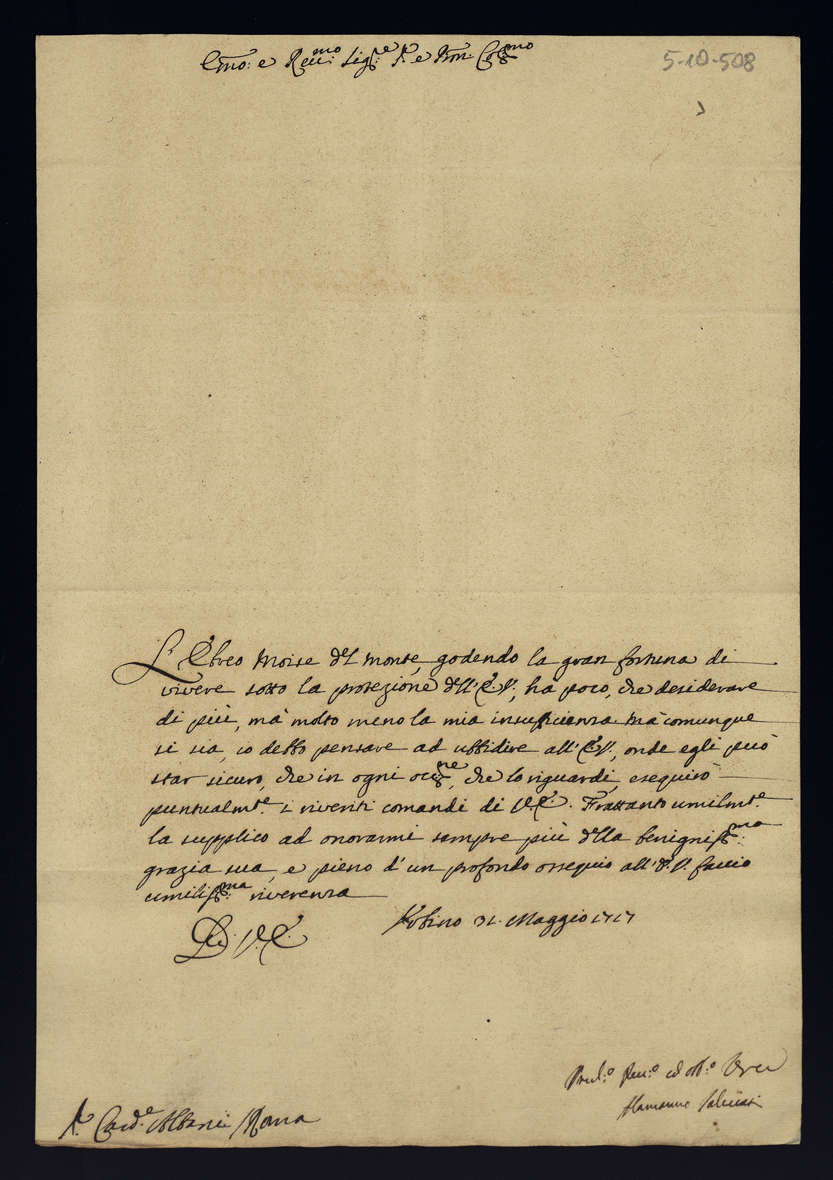 Emo: e Reu:mo Sig:re P.e e Pron Col:mo
5-10-508
L'Ebreo Moise del Monte, godendo la gran fortuna di
vivere sotto la protezione dell'E.V., ha poco, che desiderare
di più, mà molto meno la mia insuficienza. Mà comunque
si sia, io debbo pensare ad ubbidire all'E.V., onde egli può
star sicuro, che in ogni occ:ne, che lo riguardi, eseguirò
puntualmte. i riveriti comandi di V.E. Frattanto umilmte.
la supplico ad onorarmi sempre più della benigniss:ma
grazia sua, e pieno d'un profondo ossequio all'E.V. faccio
umiliss:ma riverenza
Di V.E.
Urbino 31. Maggio 1717
Umil:o Deu:o ed obb:o Serv
Alamanno Salviati
Sr. Card.e Albani Roma